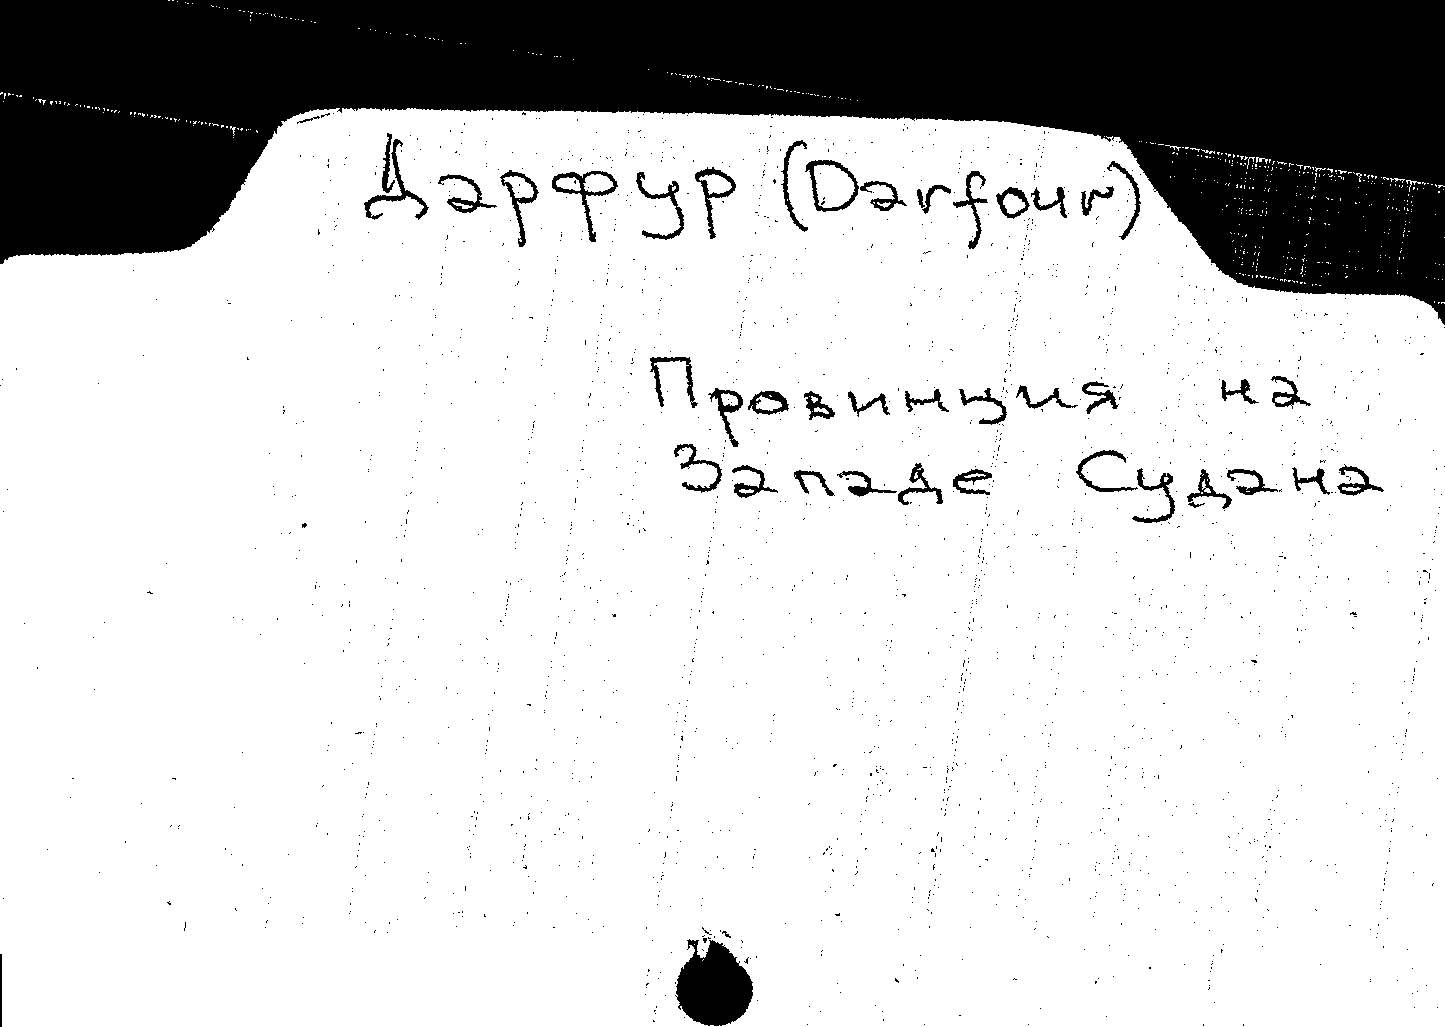 Дарфур (Darfour)
Провинция на
Западе Судана